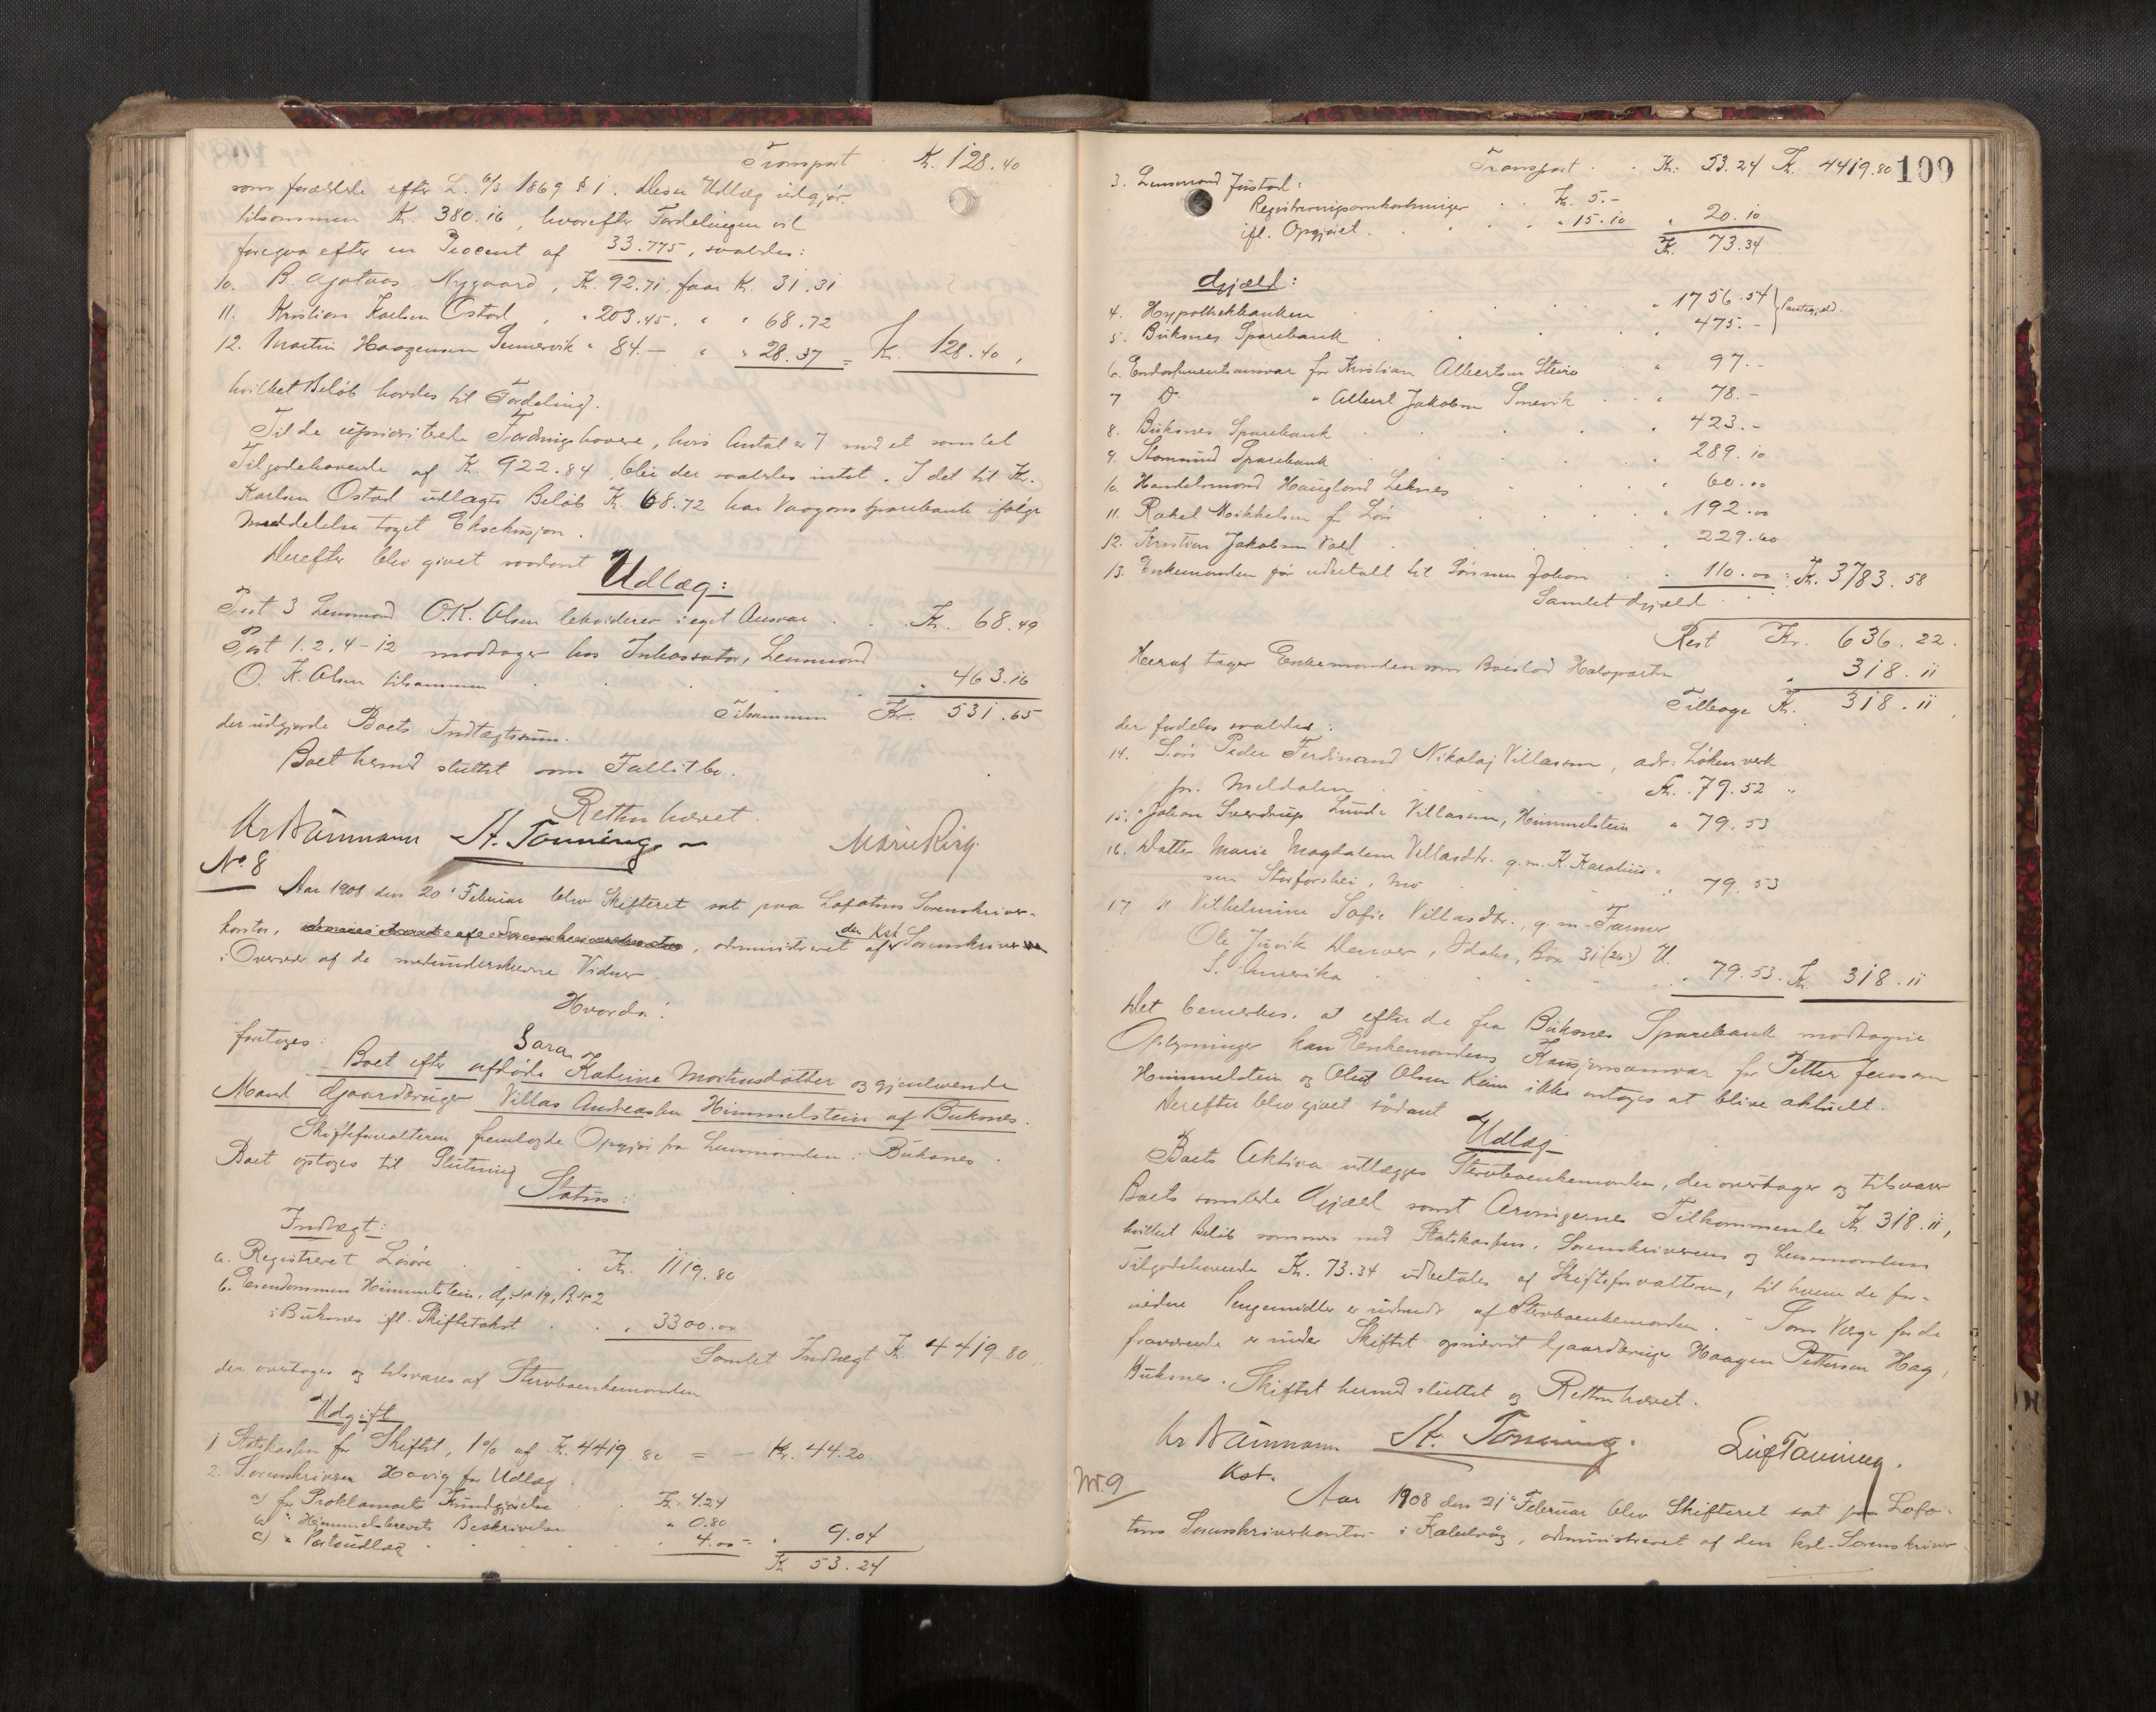 Transport Kr. 128.40
som forældede efter L. 6/3 1869 § 1. Disse Udlæg udgjør
tilsammen Kr. 380.16, hvorefter Fordelingen vil
foregaa efter en Procent af 33.775, saaledes:
10. B. Nygaard, Kr. 92.71, faar Kr. 31.31
11. Kristian Karlsen Ostad, " 203.45, " " 68.72
12. Martin Haagensen Sennervik " 84.— " " 28.37 = Kr. 128.40,
hvilket Beløb havdes til Fordeling.
Til de uprioriterede Fordringshavere, hvis Antal er 7 med et samlet
Tilgodehavende af Kr. 922.84, blir der saaledes intet. I det til Kr.
Karlsen Ostad udlagte Beløb Kr. 68.72 har Vaagans Sparebank ifølge
Meddelelse taget Eksekusjon.
Derefter blev givet saadant
Udlæg:
Post 3 Lensmand O.K. Olsen lekviderer i eget Ansvar . . Kr. 68.49
Post 1. 2, 4-12 modtager hos Inkassator, Lensmand
O. K. Olsen tilsammen . . . . " 463.16
Tilsammen Kr. 531.65
der udgjorde Boets Indtægtssum.
Boet hermed sluttet som Fallitbo.
Retten hævet.
Kr Năumann H. Tønning Marie Ring
No 8
Aar 1908 den 20' Februar blev Skifteret sat paa Lofotens Sorenskriver-
kontor, administreret af den kst. Sorenskriver
i Overvær af de medunderskrevne Vidner.
Hvorda:
foretoges:
Boet efter afdøde Sara Katrine Mortensdatter og gjenlevende
Mand Gaardbruger Villas Andreassen Himmelstein af Buksnes.
Skifteforvalteren fremlagde Opgjør fra Lensmanden i Buksnes.
Boet optoges til Slutning
Status:
Indtægt:
a. Registreret Løsøre . . . Kr. 1119.80
b. Eiendommen Himmelstein, Gj.nr 19, B.nr 2
i Buksnes ifl. Skiftetakst . . " 3300.00
Samlet Indtægt Kr. 4419.80
der overtages og tilsvares af Sterboenkemanden
Udgift
1 Statskassen for Skiftet, 1% af Kr. 4419.80 = - Kr. 44.20
2. Sorenskriver Havig for Udlæg.
a) for Proklamaets Kundgjørelse . Kr. 4.24
b) " Hjemmelsbrevets Beskrivelse " 0.80
c) " Portoudlæg . . . . . 4.00 = " 9.04
Kr 53.24
Transport . . Kr. 53.24 Kr. 4419.80 109
3. Lensmand Justad:
Registreringsomkostninger . . Kr. 5.-
ifl. Opgjøret . . . . . " 15.10 " 20.10
Kr. 73.34
Gjæld:
4. Hypothekbanken . . . . " 1756.54 } Pantegjæld.
5. Buksnes Sparebank . . . . " 475.-
6. Endossementsansvar for Kristian Albertsen Steira " 97.-
7 Do " Albert Jakobsen Smevik . . " 78.-
8. Buksnes Sparebank . . . . " 423.-
9. Stamsund Sparebank . . . . " 289.10
10. Handelsmand Haugland Leknes . . " 60.00
11. Rakel Mikkelsen for Løn . . . " 192.00
12. Kristian Jakobsen Vold . . . " 229.60
13. Enkemanden for udbetalt til Sønnen Johan . . 110.00 : Kr. 3783.58
Samlet Gjæld
Rest Kr. 636.22.
Heraf tager Enkemanden som Boeslod Halvparten " 318.11
Tilbage Kr. 318.11
der fordeles saaledes:
14. Søn Peder Ferdinand Nikolaj Villassen, adr: Løkenverk
pr. Meldalen . . . Kr. 79.52 "
15. " Johan Sverdrup Lunde Villassen, Himmelstein " 79.53
16. Datter Marie Magdalena Villasdtr. g.m. K. Karolius-
sen Storforshei, Mo . . . " 79.53
17 " Vilhelmine Sofie Villasdtr., g.m. Farmer
Ole Juvik Denver, Idaho, Box 31 U.
S. Amerika . . . . " 79.53. Kr. 318.11
Det bemerkes, at efter de fra Buksnes Sparebank modtagne
Oplysninger kan Enkemandens Kausjonsansvar for Petter Jensen
Himmelstein og Oluf Olsen Keim ikke antages at blive aktuelt.
Derefter blev givet sådant
Udlæg
Boets Aktiva utlægges Sterboenkemanden, der overtager og tilsvarer
Boets samlede Gjæld samt Arvingernes Tilkommende Kr. 318.11,
hvilket Beløb sammen med Statskassens, Sorenskriverens og Lensmandens
Tilgodehavende Kr. 73.34 udbetales af Skifteforvalteren, til hvem de for-
nødne Pengemidler er indsendt af Sterboenkemanden. - Som Værge for de
fraværende er under Skiftet opnævnt Gaardbruger Haagen Pettersen Hag,
Buksnes. Skiftet hermed sluttet og Retten hævet.
Kr Năumann H. Tønning. Leif Tønning.
kst.
Nr. 9
Aar 1908 den 21' Februar blev Skifteret sat paa Lofo-
tens Sorenskriverkontor i Kabelvåg, administreret af den kst. Sorenskriver